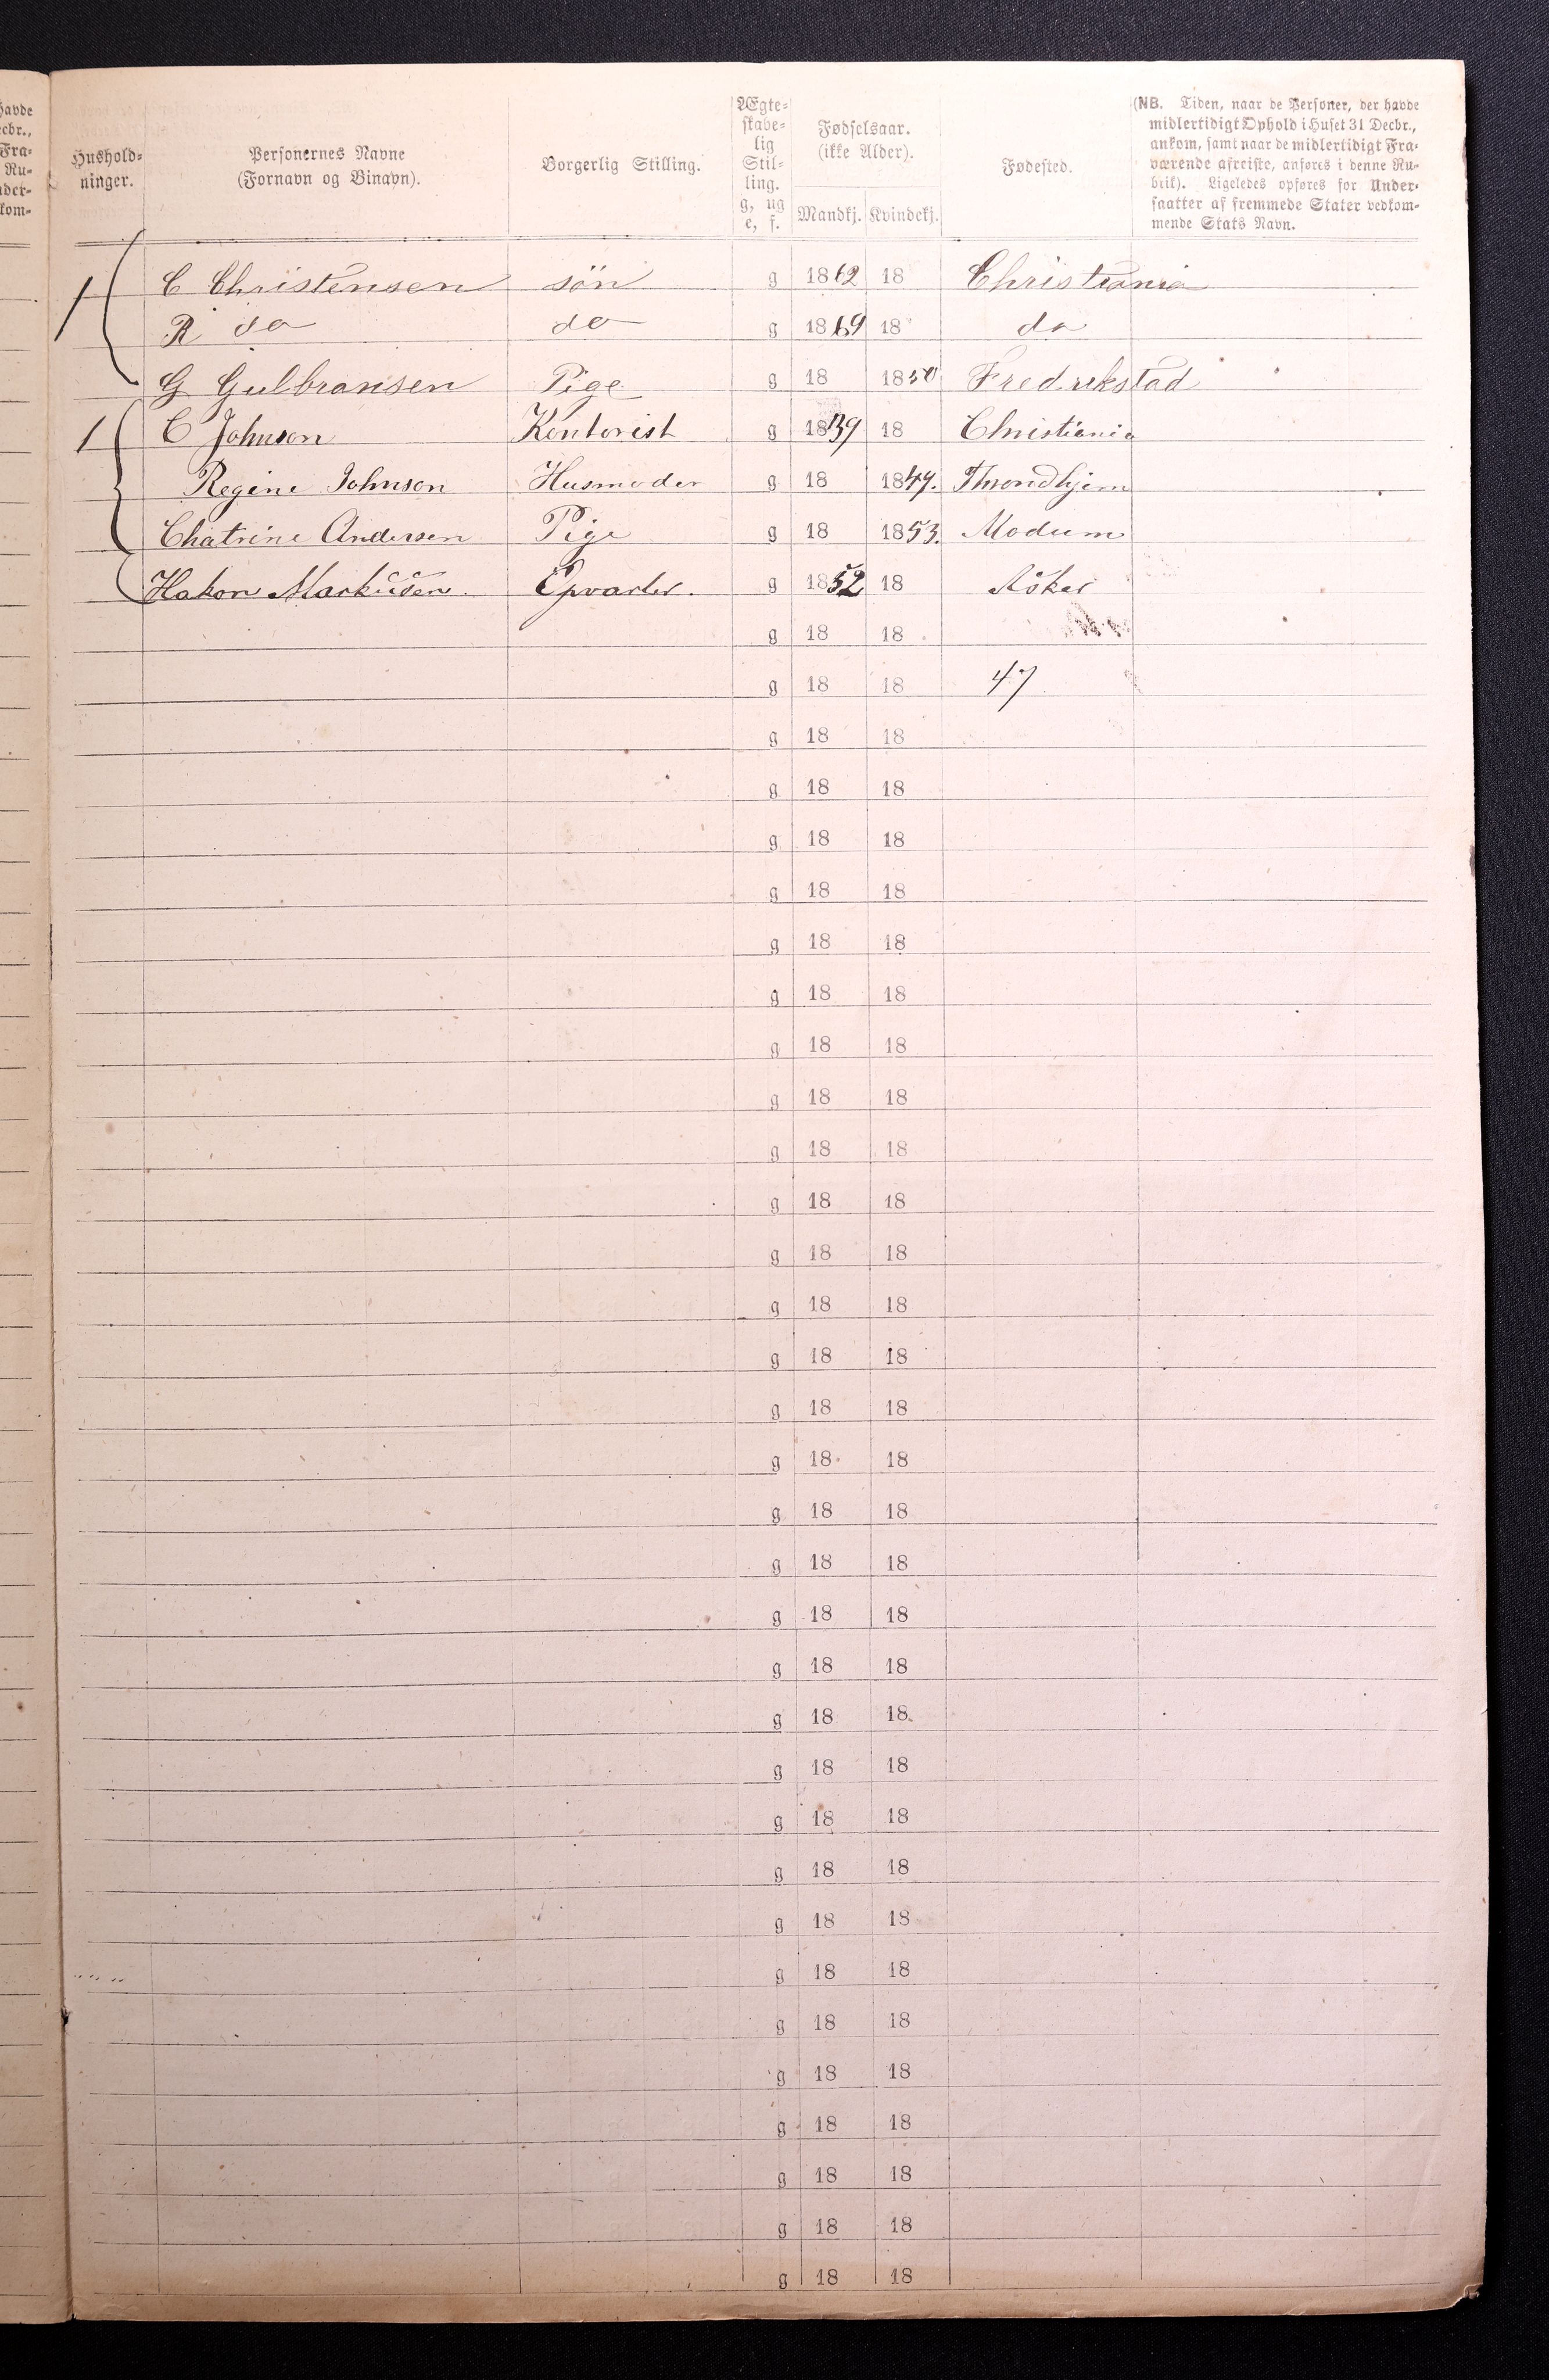 havde
ecbr.,
Fra-
Ru-
nder-
kom-
Hushold-
ninger.
Personernes Navne
(Fornavn og Binavn).
Borgerlig Stilling.
Ægte-
skabe-
lig
Stil-
ling.
g, ug
e, f.
Fødselsaar.
(ikke Alder).
Mandkj. Kvindekj.
Fødested.
(NB. Tiden, naar de Personer, der havde
midlertidigt Ophold i Huset 31 Decbr.,
ankom, samt naar de midlertidigt Fra-
værende afreiste, anføres i denne Ru-
brik). Ligeledes opføres for Under-
saatter af fremmede Stater vedkom-
mende Stats Navn.
1 C Christensen sön g 1862 18 Christiania
R do do g 1869 18 do
G Gulbransen Pige g 18 1850 Fredrikstad
1 C Johnson Kontorist g 1839 18 Christiania
Regine Johnson Husmoder g 18 1849. Throndhjem
Chatrine Andersen Pige g 18 1853. Modum
Hakon Markusen. Opvarter. g 1852 18 Asker
g 18 18
g 18 18 47
g 18 18
g 18 18
g 18 18
g 18 18
g 18 18
g 18 18
g 18 18
g 18 18
g 18 18
g 18 18
g 18 18
g 18 18
g 18 18
g 18 18
g 18 18
g 18 18
g 18 18
g 18 18
g 18 18
g 18 18
g 18 18
g 18 18
g 18 18
g 18 18
g 18 18
g 18 18
g 18 18
g 18 18
g 18 18
g 18 18
g 18 18